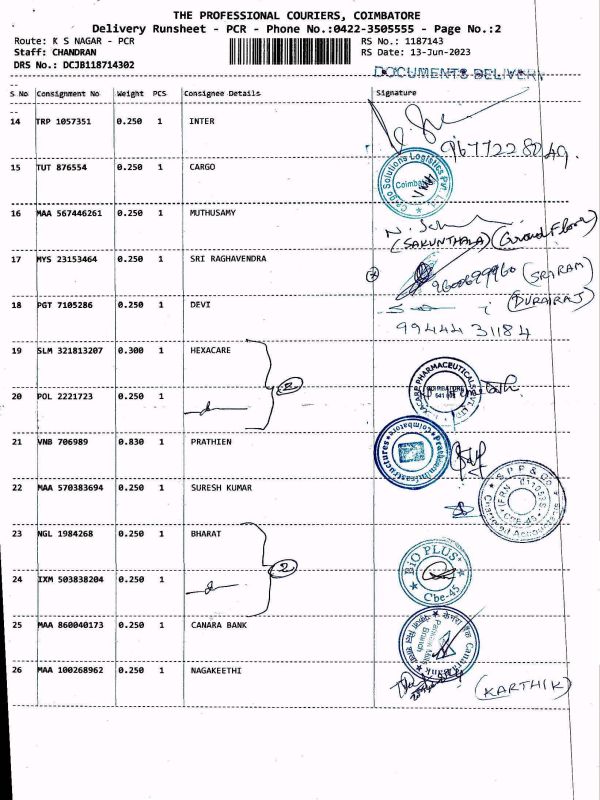 THE PROFESSIONAL COURIERS, COIMBATORE
Delivery Runsheet - PCR - Phone No.:0422-3505555 - Page No.:2
Route: K S NAGAR - PCR RS No.: 1187143
Staff: CHANDRAN RS Date: 13-Jun-2023
DRS No.: DCJB118714302
DOCUMENTS DELIVERY
S No Consignment No Weight PCS Consignee Details Signature
14 TRP 1057351 0.250 1 INTER
9677228049.
15 TUT 876554 0.250 1 CARGO
Cargo Solutions Logistics Pvt. Ltd. Coimbatore
16 MAA 567446261 0.250 1 MUTHUSAMY
(SAKUNTHALA) (Ground Floor)
17 MYS 23153464 0.250 1 SRI RAGHAVENDRA
9600699960 (SRIRAM)
18 PGT 7105286 0.250 1 DEVI
(DURAIRAJ)
99444 31184
19 SLM 321813207 0.300 1 HEXACARE
2
HEXACARE PHARMACEUTICALS PVT LTD COIMBATORE
20 POL 2221723 0.250 1
21 VNB 706989 0.830 1 PRATHIEN
Prathien Infrastructures Coimbatore
22 MAA 570383694 0.250 1 SURESH KUMAR
S P P & Co Chartered Accountants CBE-45
23 NGL 1984268 0.250 1 BHARAT
2
BiO PLUS Cbe-45
24 IXM 503838204 0.250 1
25 MAA 860040173 0.250 1 CANARA BANK
Canara Bank Branch
26 MAA 100268962 0.250 1 NAGAKEETHI
(KARTHIK)